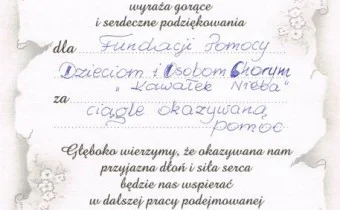 wyraża gorące
i serdeczne podziękowania
dla Fundacji Pomocy
Dzieciom i Osobom Chorym
"Kawałek Nieba"
za ciągle okazywaną
pomoc
Głęboko wierzymy, że okazywana nam
przyjazna dłoń i siła serca
będzie nas wspierać
w dalszej pracy podejmowanej